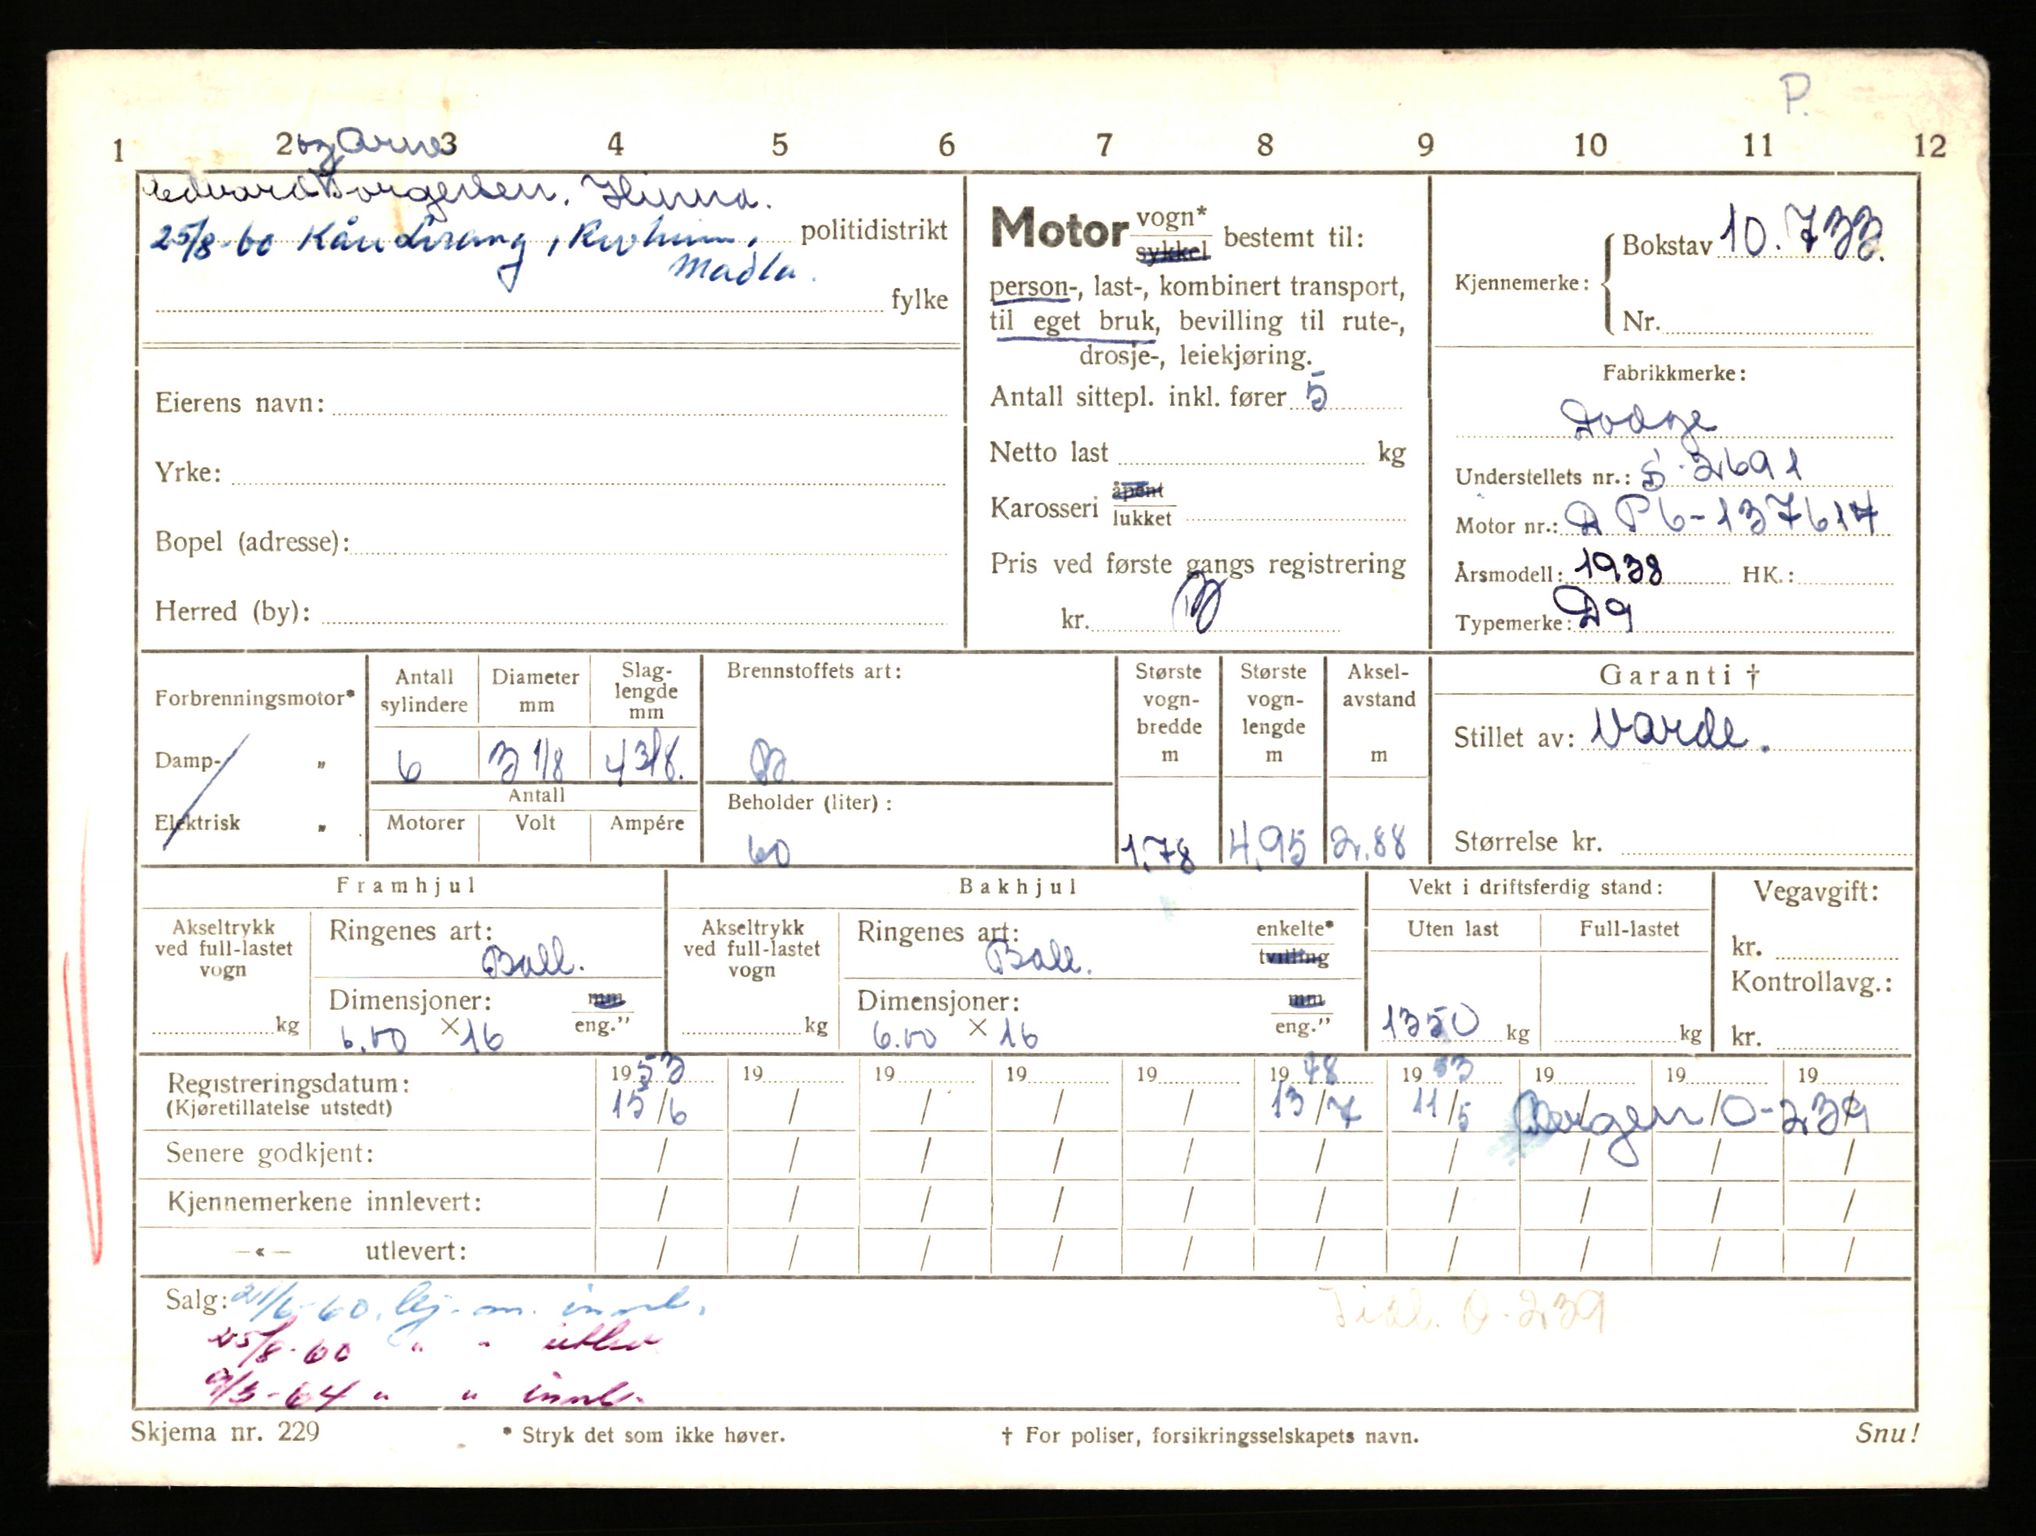 P.
1 2 3 4 5 6 7 8 9 10 11 12
og Arne
Edvard Borgersen, Hinna.
25/8-60 politidistrikt
Madla.
fylke
Eierens navn:
Yrke:
Bopel (adresse):
Herred (by):
Motor vogn*
sykkel
bestemt til:
person-, last-, kombinert transport,
til eget bruk, bevilling til rute-,
drosje-, leiekjøring.
Antall sittepl. inkl. fører 5
Netto last kg
Karosseri åpent
lukket
Pris ved første gangs registrering
kr.
Kjennemerke: Bokstav 10.733.
Nr.
Fabrikkmerke:
Dodge
Understellets nr.: S.2691
Motor nr.: D P6-137617
Årsmodell: 1938 HK.:
Typemerke: D9
Forbrenningsmotor*
Damp- „
Elektrisk „
Antall sylindere
6
Diameter mm
3 1/8
Slag-lengde mm
4 3/8.
Antall
Motorer Volt Ampére
Brennstoffets art:
B
Beholder (liter):
60
Største vogn-bredde m
1,78
Største vogn-lengde m
4,95
Aksel-avstand m
2.88
Garanti †
Stillet av: Varde.
Størrelse kr.
Framhjul
Akseltrykk ved full-lastet vogn
kg
Ringenes art:
Ball.
Dimensjoner: mm
eng."
6.00 × 16
Bakhjul
Akseltrykk ved full-lastet vogn
kg
Ringenes art: enkelte*
tvilling
Ball.
Dimensjoner: mm
eng."
6.00 × 16
Vekt i driftsferdig stand:
Uten last Full-lastet
1350 kg kg
Vegavgift:
kr.
Kontrollavg.:
kr.
Registreringsdatum: 1953 19 19 19 19 1948 1953 19 19 19
(Kjøretillatelse utstedt) 15/6 / / / / 13/7 11/5 Bergen O-239
Senere godkjent: / / / / / / / / / /
Kjennemerkene innlevert: / / / / / / / / / /
—«— utlevert: / / / / / / / / / /
Salg: 21/6-60. kj. m. innl.
25/8-60 " " utlev
9/3-64 " " innl.
Tidl. O-239
Skjema nr. 229
* Stryk det som ikke høver.
† For poliser, forsikringsselskapets navn.
Snu!